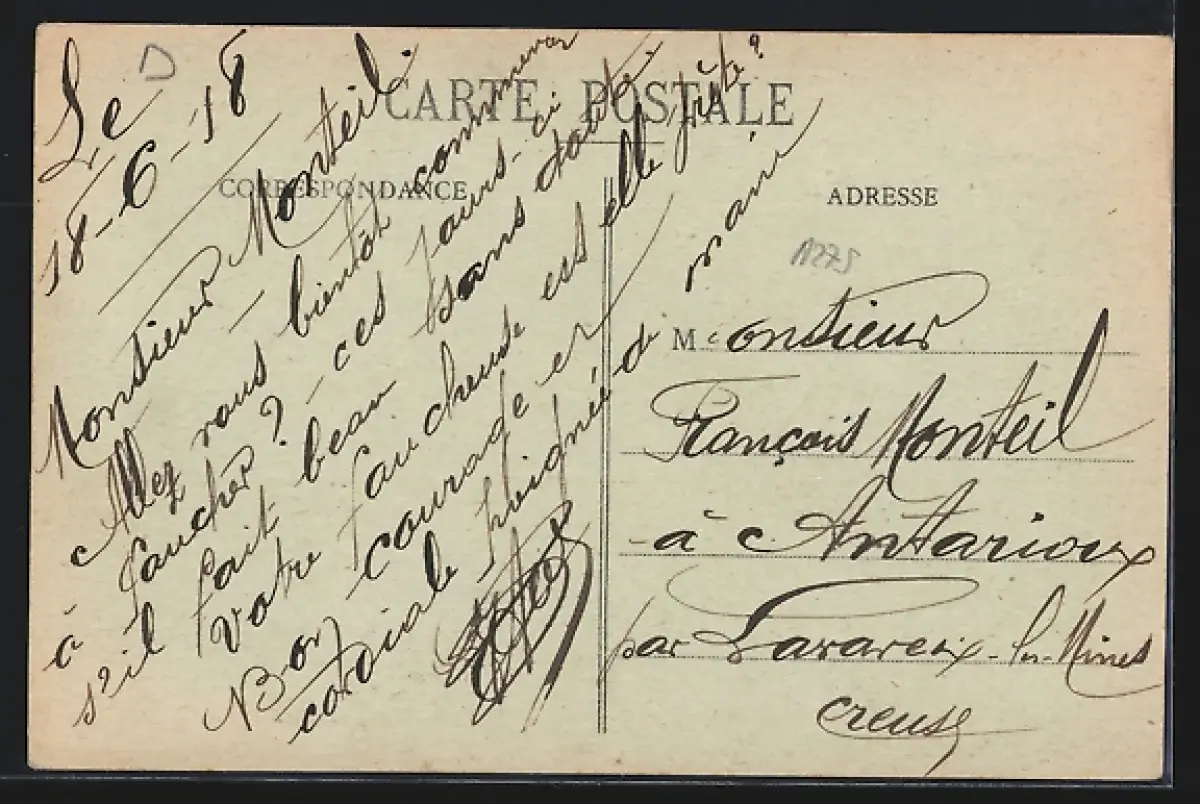 CARTE POSTALE
CORRESPONDANCE
ADRESSE
D
Le
18-6-18
Monsieur Monteil.
Allez vous bientôt commencer
à faucher? - ces jours-ci
s'il fait beau sans doute
Votre faucheuse est elle prête?
Bon courage et
cordiale poignée de main
M onsieur
François Monteil
à Antarioux
par Lavaveix-les-Mines
Creuse